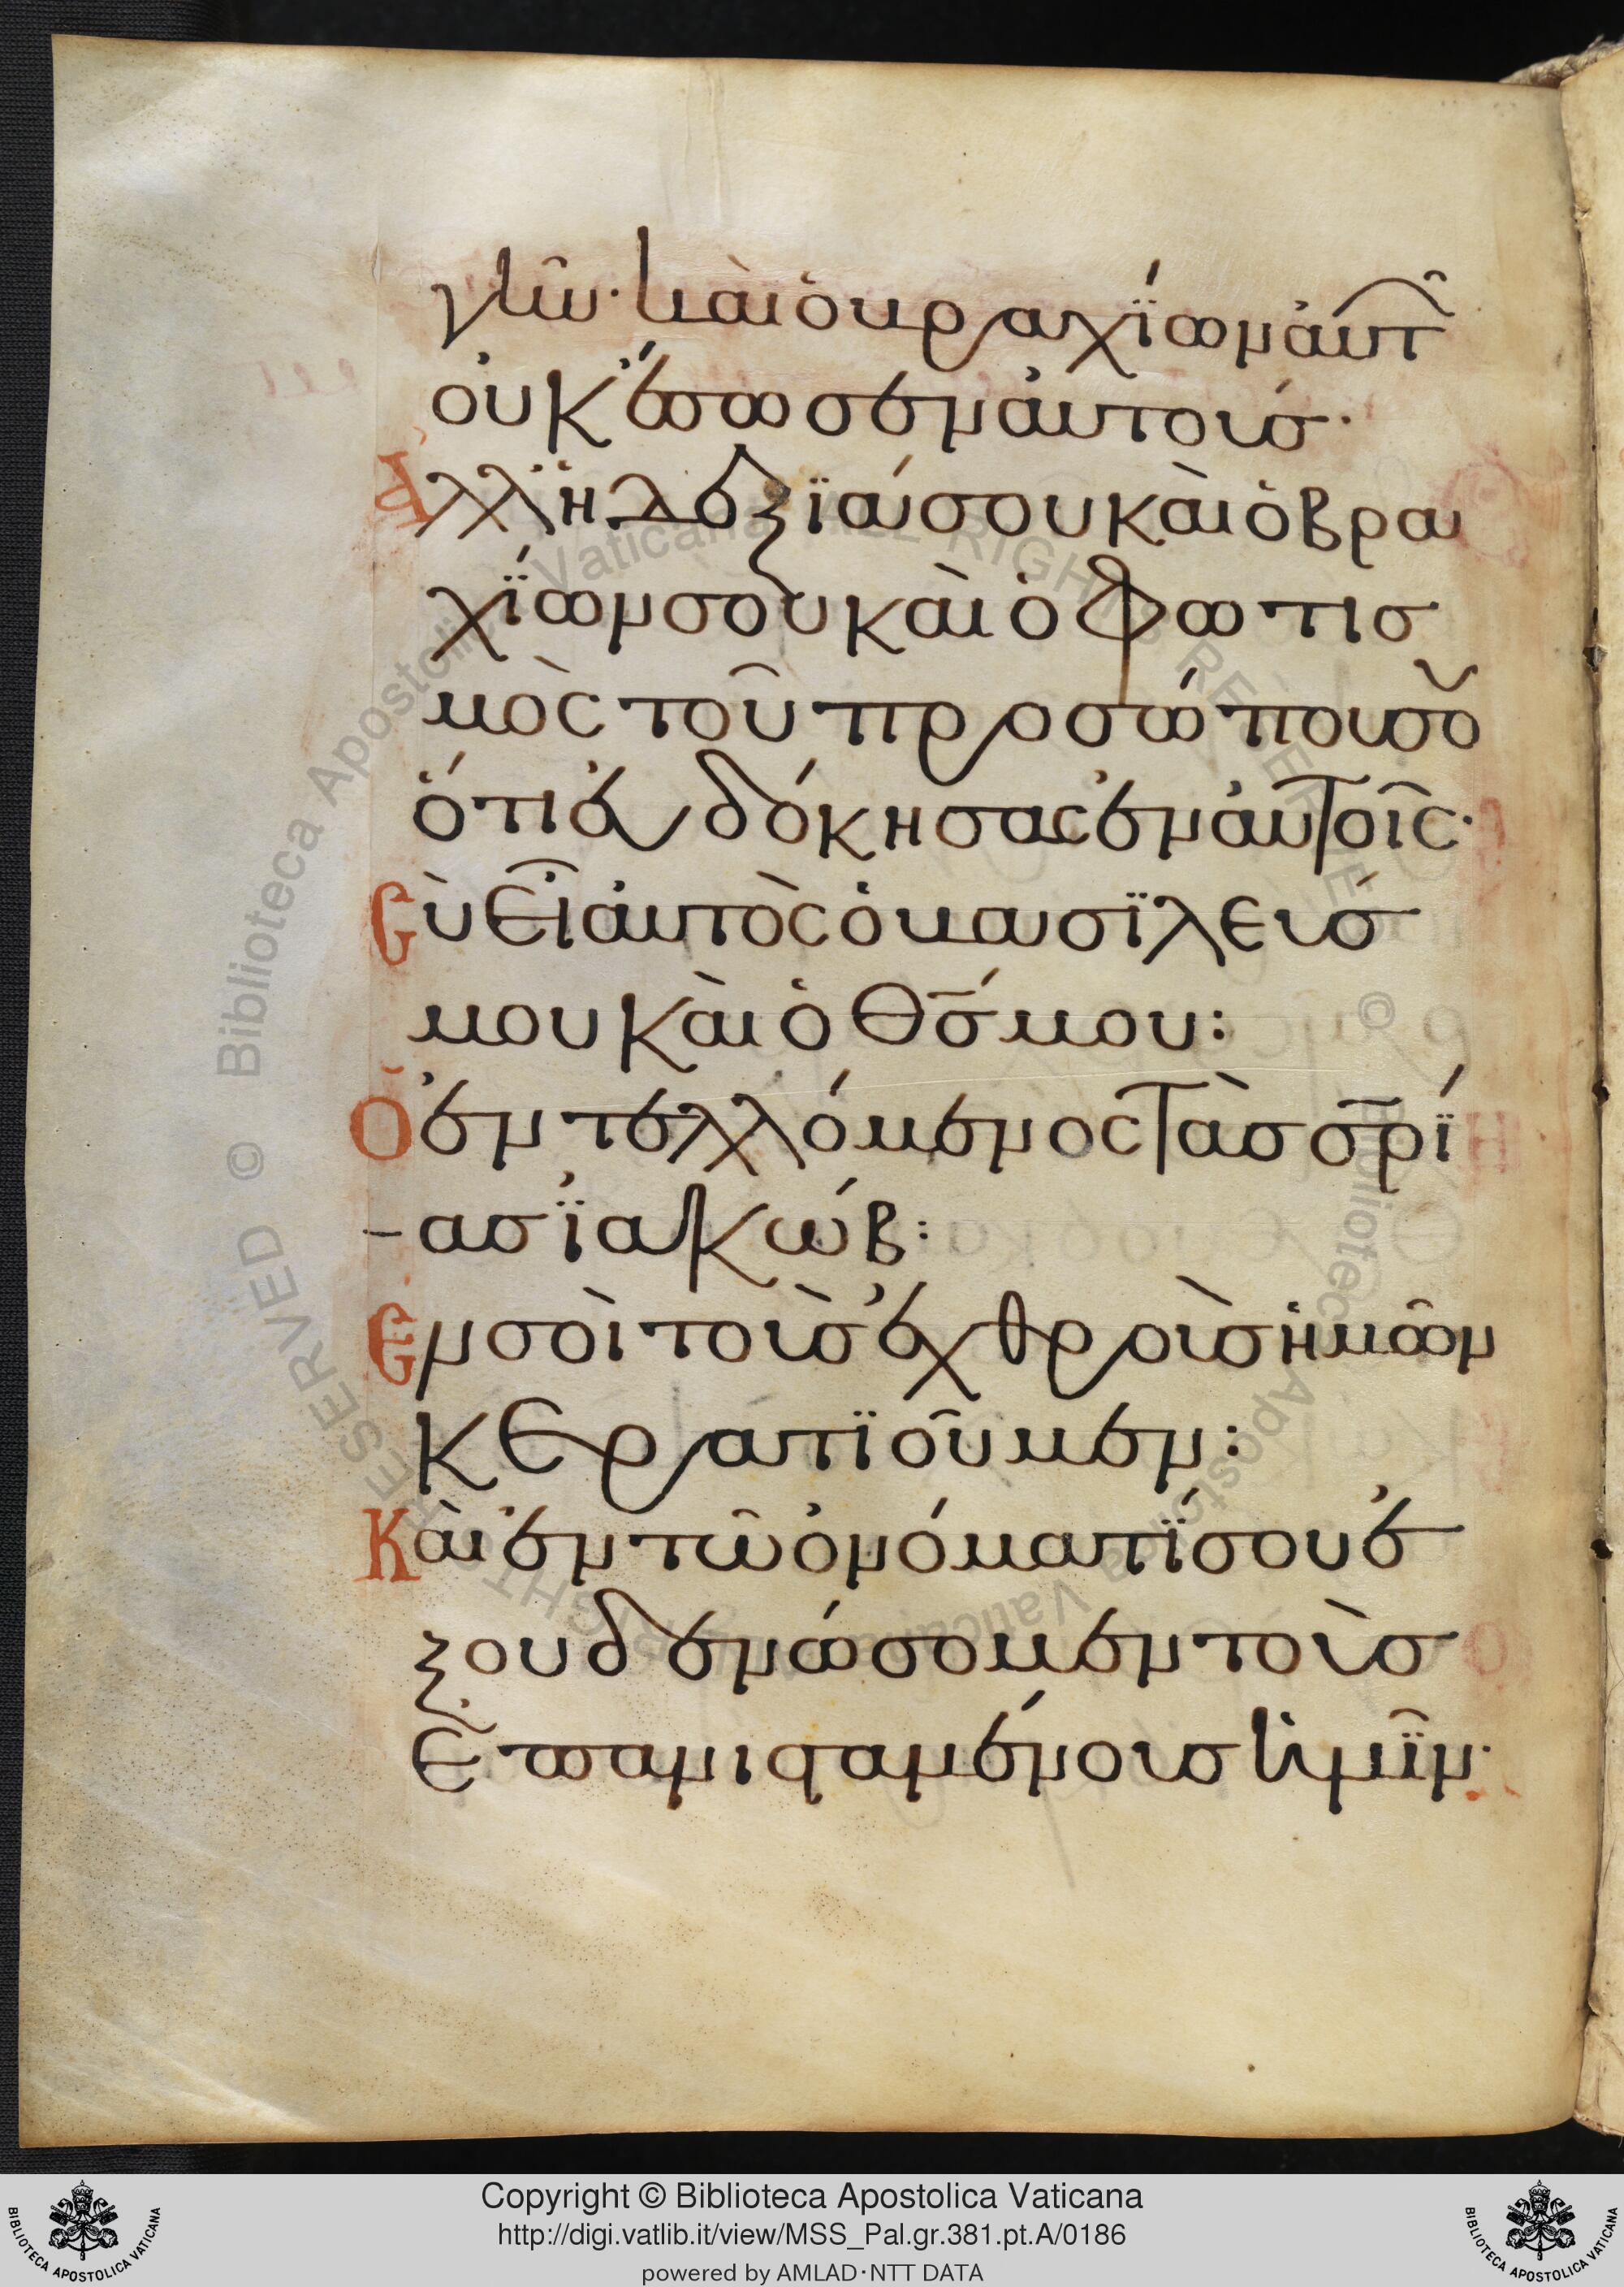 γῆν· καὶ ὁ βραχΐων ἀυτ͂
ὀυκ ἔσωσεν ἀυτούσ·
Ἀλλ' ἡ δεξϊά σου καὶ ὁ βρα
χΐων σοὺ καὶ ὁ φωτισ
μὸς τοῦ προσώπου σȣ
ὅτι ἐυδόκησας ἐν ἀυτοῖς·
Σὺ εἶ ἀυτὸς ὁ βασϊλεύσ
μου καὶ ὁ θ̅σ́ μου:
Ὁ ἐντελλόμενος τὰσ σ̅ρ̅ΐ
ασ ϊακώβ:
Εν σοὶ τοὺσ ἐχθροὺσ ἡμῶν
κερατϊοῦμεν:
Καὶ ἐν τῶ ὀνόματΐ σου ἐ
ξουδενώσομεν τοὺσ
ἐπανισταμένουσ ἡμῖν·
Copyright © Biblioteca Apostolica Vaticana
http://digi.vatlib.it/view/MSS_Pal.gr.381.pt.A/0186
powered by AMLAD·NTT DATA
BIBLIOTECA APOSTOLICA VATICANA
BIBLIOTECA APOSTOLICA VATICANA